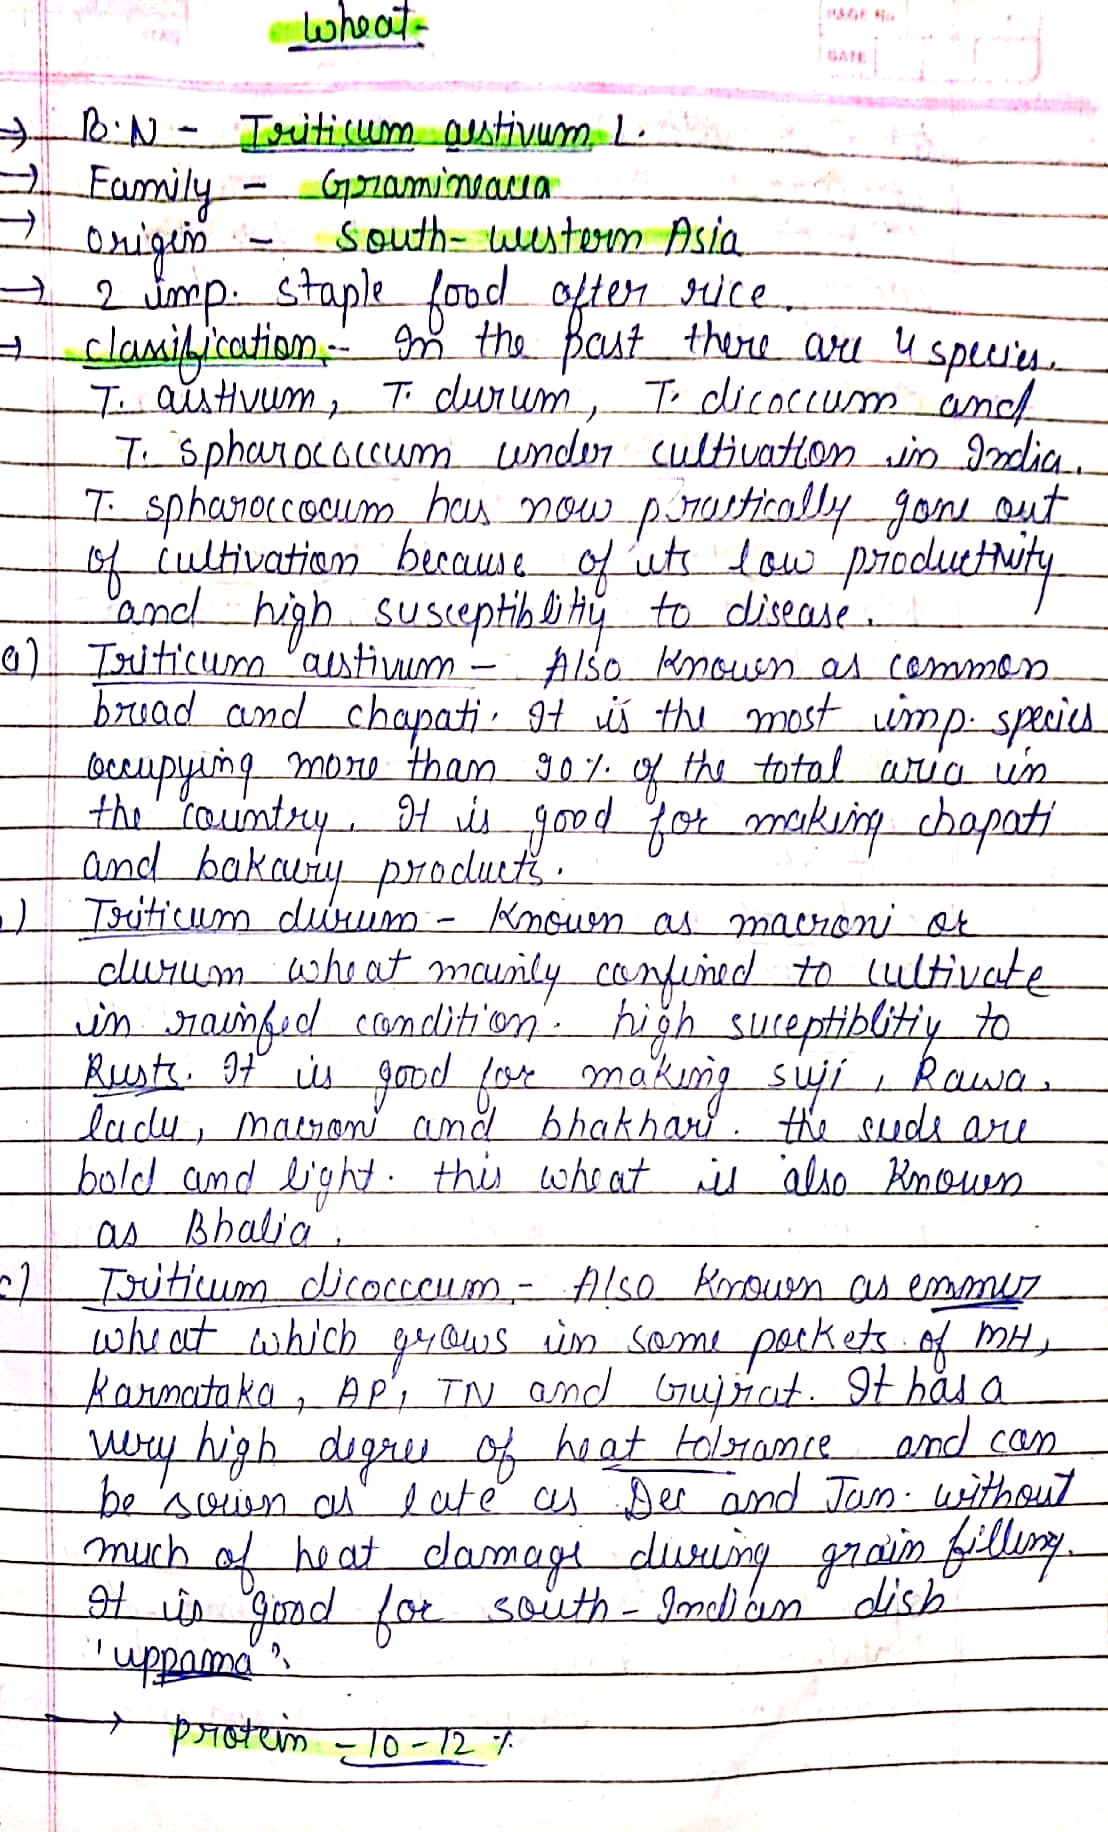 Wheat-
PAGE No.
DATE
→ B.N - Triticum aestivum L.
→ Family - Gramineacea
→ origin - South-western Asia
→ 2 imp. staple food after rice.
→ classification - In the past there are 4 species.
T. aistivum, T. durum, T. dicoccum and
T. spharococcum under cultivation in India.
T. spharoccocum has now practically gone out
of cultivation because of its low productivity
and high susceptiblitiy to disease.
a) Triticum aestivum - Also known as common
bread and chapati. It is the most imp. species
occupying more than 90% of the total area in
the country. It is good for making chapati
and bakary products.
) Triticum durum - Known as macroni or
durum wheat mainly confined to cultivate
in rainfed condition. high suceptiblitiy to
Rusts. It is good for making suji, Rawa,
ladu, macroni and bhakhari. the seeds are
bold and light. this wheat is also known
as Bhalia.
c) Triticum dicocccum - Also known as emmer
wheat which grows in some pockets of MH,
Karnataka, AP, TN and Gujrat. It has a
very high degree of heat tolerance and can
be sown as late as Dec and Jan. without
much of heat damage during grain filling.
It is good for south-Indian dish
'uppama'.
→ protein - 10-12 %